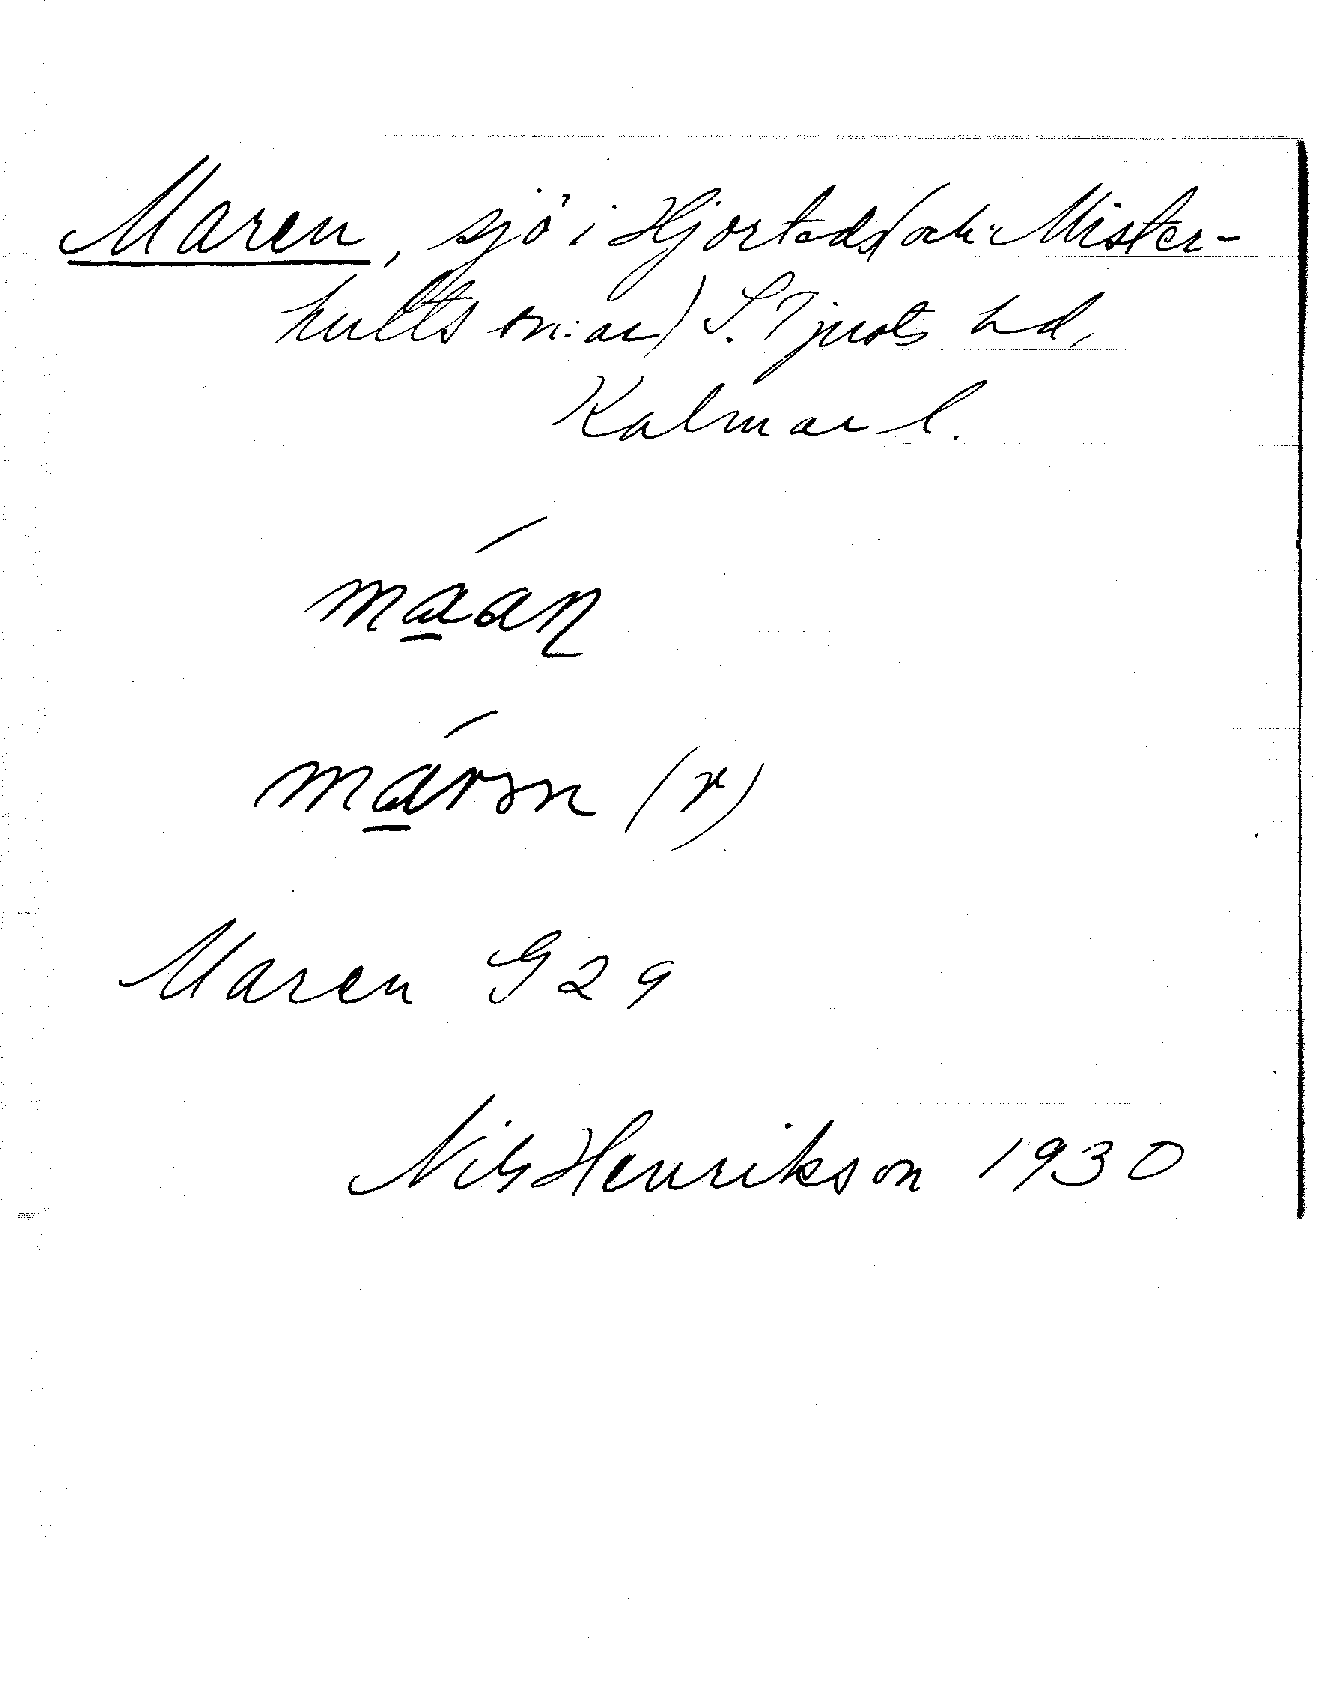 Maren, sjö i Hjorteds (och Mister-
hults sn:ar) S. Tjusts hd,
Kalmar l.
má̱an
má̱rən (r)
Maren G 29
Nils Henrikson 1930